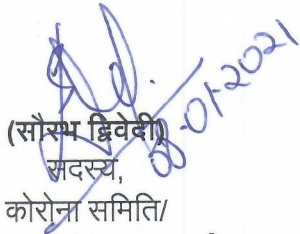 08-01-2021
(सौरभ द्विवेदी)
सदस्य,
कोरोना समिति/